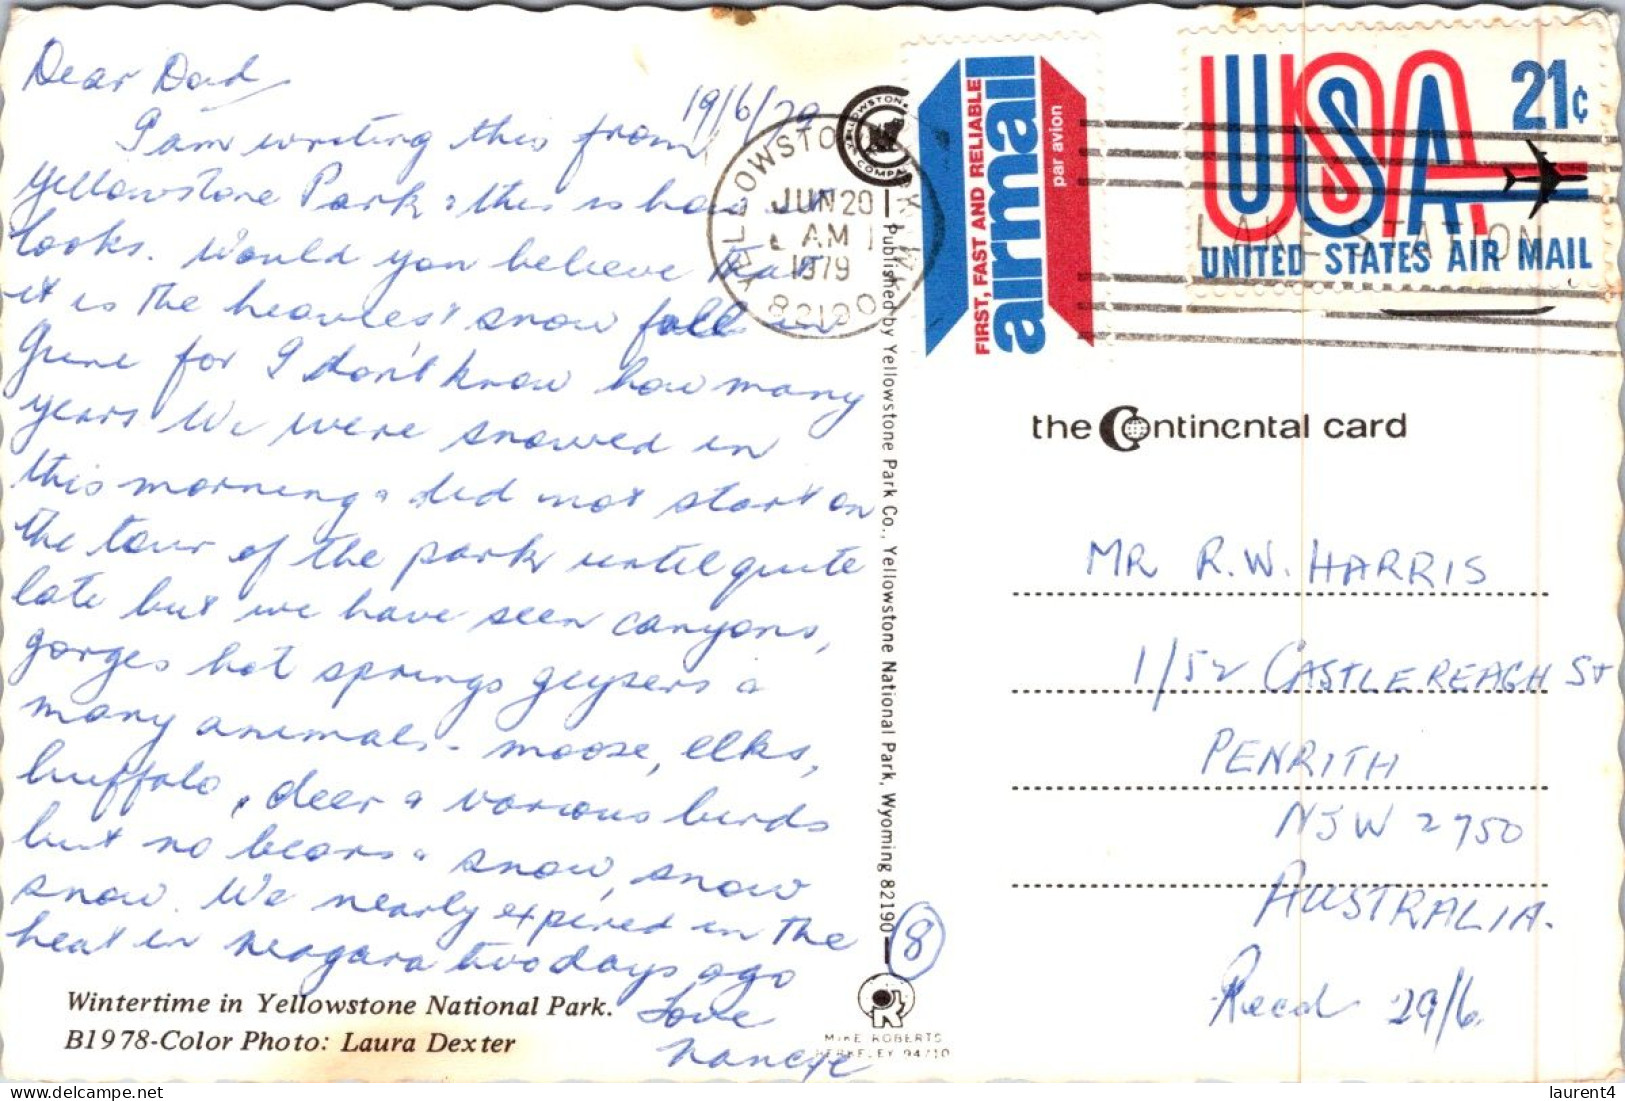 Dear Dad
19/6/79
I am writing this from
Yellowstone Park & this is how it
looks. Would you believe that
it is the heaviest snow fall in
June for I don't know how many
years We were snowed in
this morning & did not start on
the tour of the park until quite
late but we have seen canyons,
gorges hot springs geysers &
many animals - moose, elks,
buffalo, deer & various birds
but no bears & snow, snow
snow. We nearly expired in the
heat in Niagara two days ago
Love
Nancye
Wintertime in Yellowstone National Park.
B1978-Color Photo: Laura Dexter
Published by Yellowstone Park Co., Yellowstone National Park, Wyoming 82190
8
MIKE ROBERTS
BERKELEY 94710
YELLOWSTONE
COMPANY
YELLOWSTONE PARK, WY
JUN 20
AM
1979
82190
LAKE STATION
FIRST, FAST AND RELIABLE
airmail
par avion
USA
21¢
UNITED STATES AIR MAIL
the Continental card
MR R.W. HARRIS
1/52 CASTLEREAGH St
PENRITH
NSW 2750
AUSTRALIA.
Recd 29/6.
laurent4